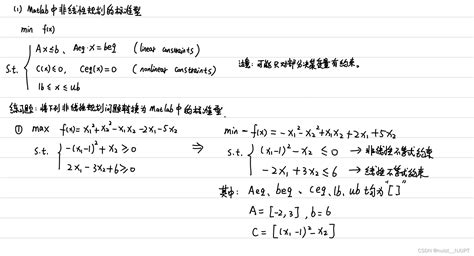 (1) Matlab中非线性规划的标准型
min f(x)
s.t. { Ax≤b, Aeq·x=beq (linear constraints)
C(x)≤0, Ceq(x)=0 (nonlinear constraints)
lb≤x≤ub
注:可能只对部分决策变量有约束。
练习题:将下列非线性规划问题转换为Matlab中的标准型.
① max f(x)=x₁²+x₂²-x₁x₂-2x₁-5x₂
s.t. { -(x₁-1)²+x₂≥0
2x₁-3x₂+6≥0
⇒
min -f(x)=-x₁²-x₂²+x₁x₂+2x₁+5x₂
s.t. { (x₁-1)²-x₂≤0 → 非线性不等式约束
-2x₁+3x₂≤6 → 线性不等式约束
其中: Aeq、beq、ceq、lb、ub 均为"[]"
A=[-2,3], b=6
C=[(x₁-1)²-x₂]